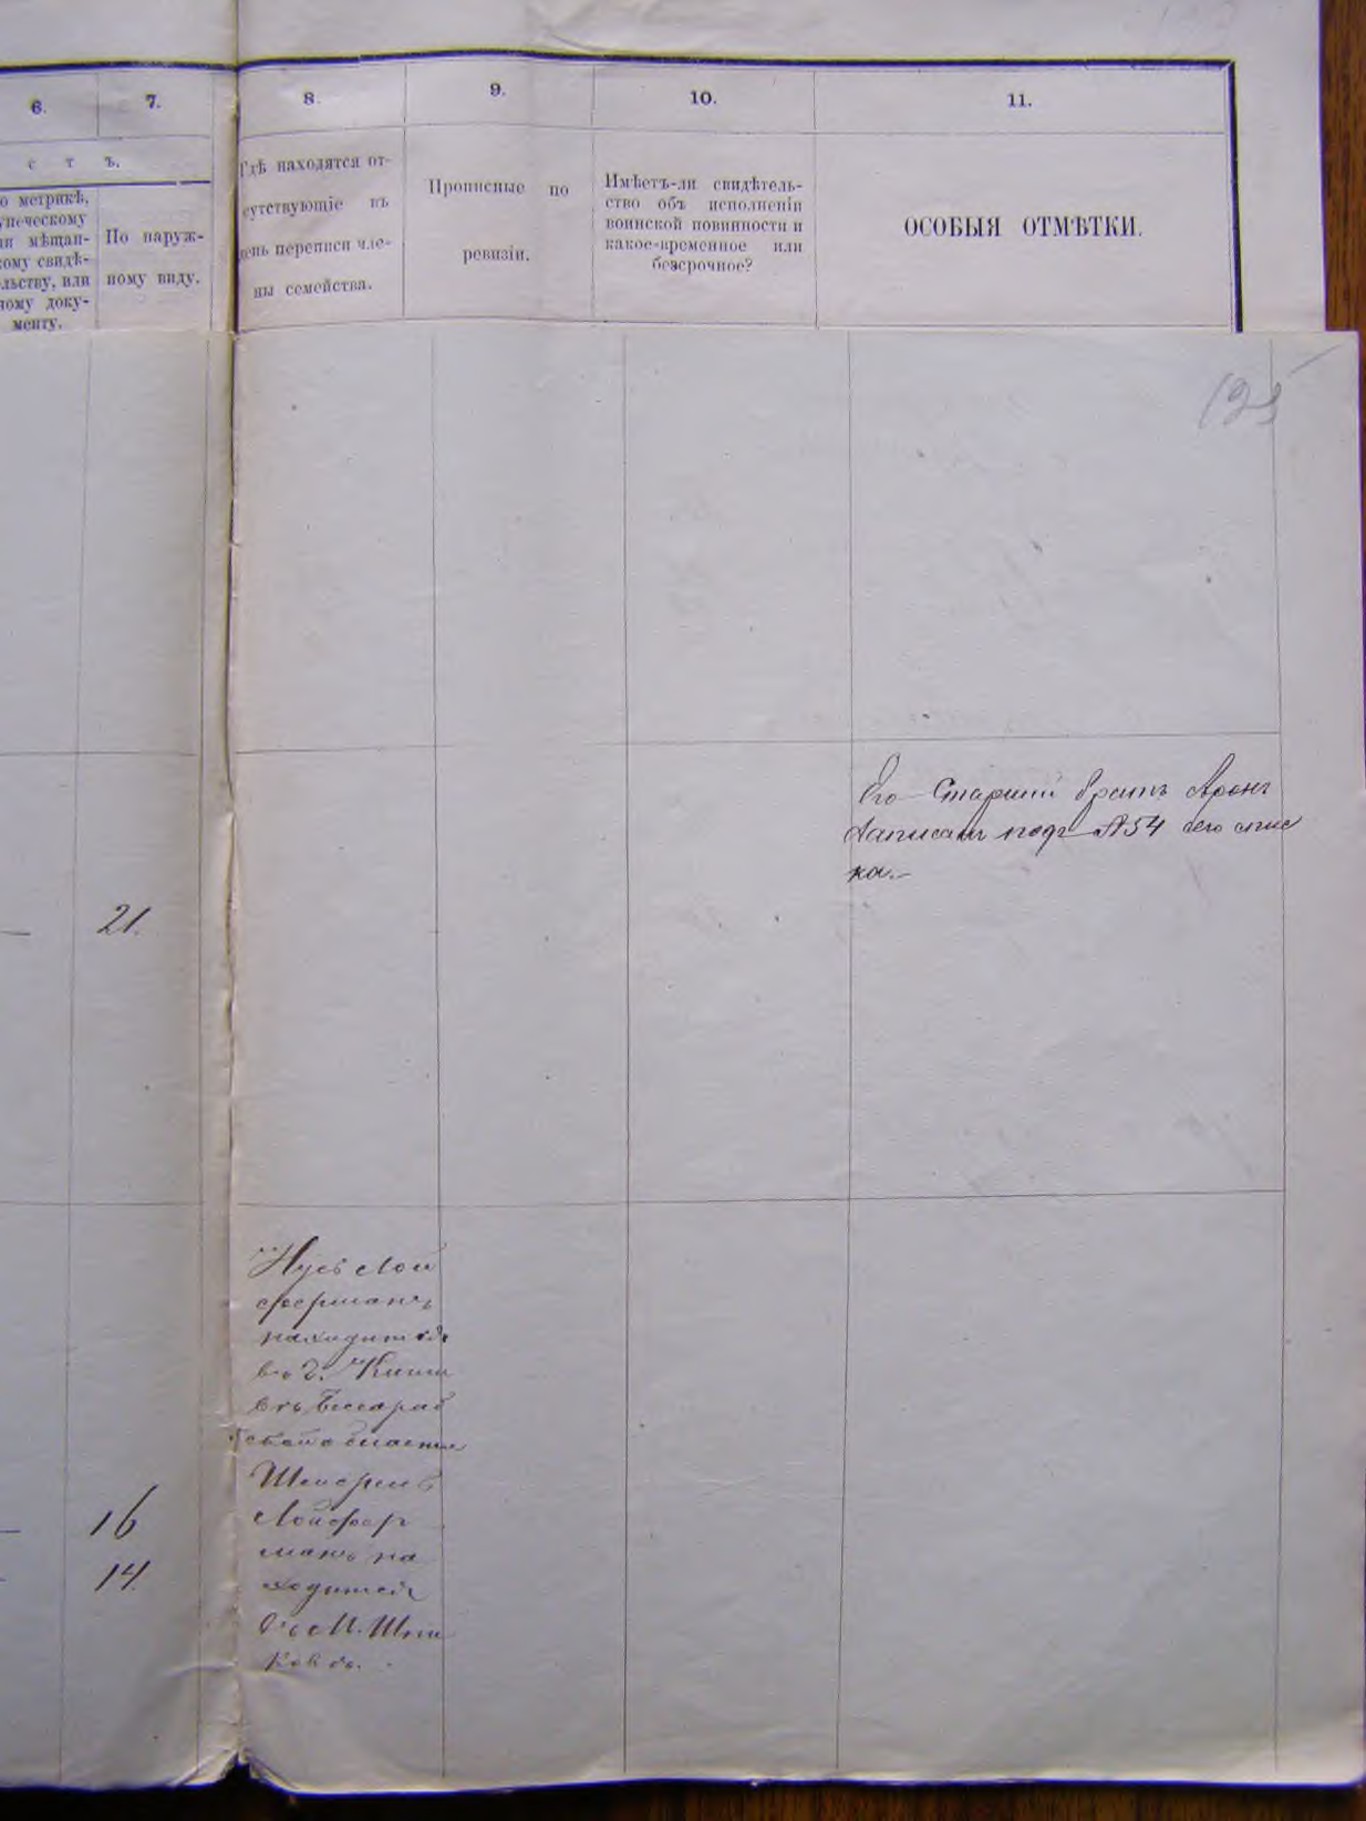 6.
7.
8.
9.
10.
11.
с т ъ.
о метрикѣ,
упеческому
ли мѣщан-
кому свидѣ-
льству, или
ному доку-
менту.
По наруж-
ному виду.
Гдѣ находятся от-
сутствующіе въ
день переписи чле-
ны семейства.
Прописные по
ревизіи.
Имѣетъ-ли свидѣтель-
ство объ исполненіи
воинской повинности и
какое-временное или
безсрочное?
ОСОБЫЯ ОТМѢТКИ.
125
Его Старшій братъ Аронъ
записанъ подъ № 54 сего спис
ка.-
21.
Нусъ Лой
ферманъ
находится
въ г. Киши
Бессараб
ской области
16
14.
Лойфер
манъ на
ходится
въ М. Шпи
ковъ.